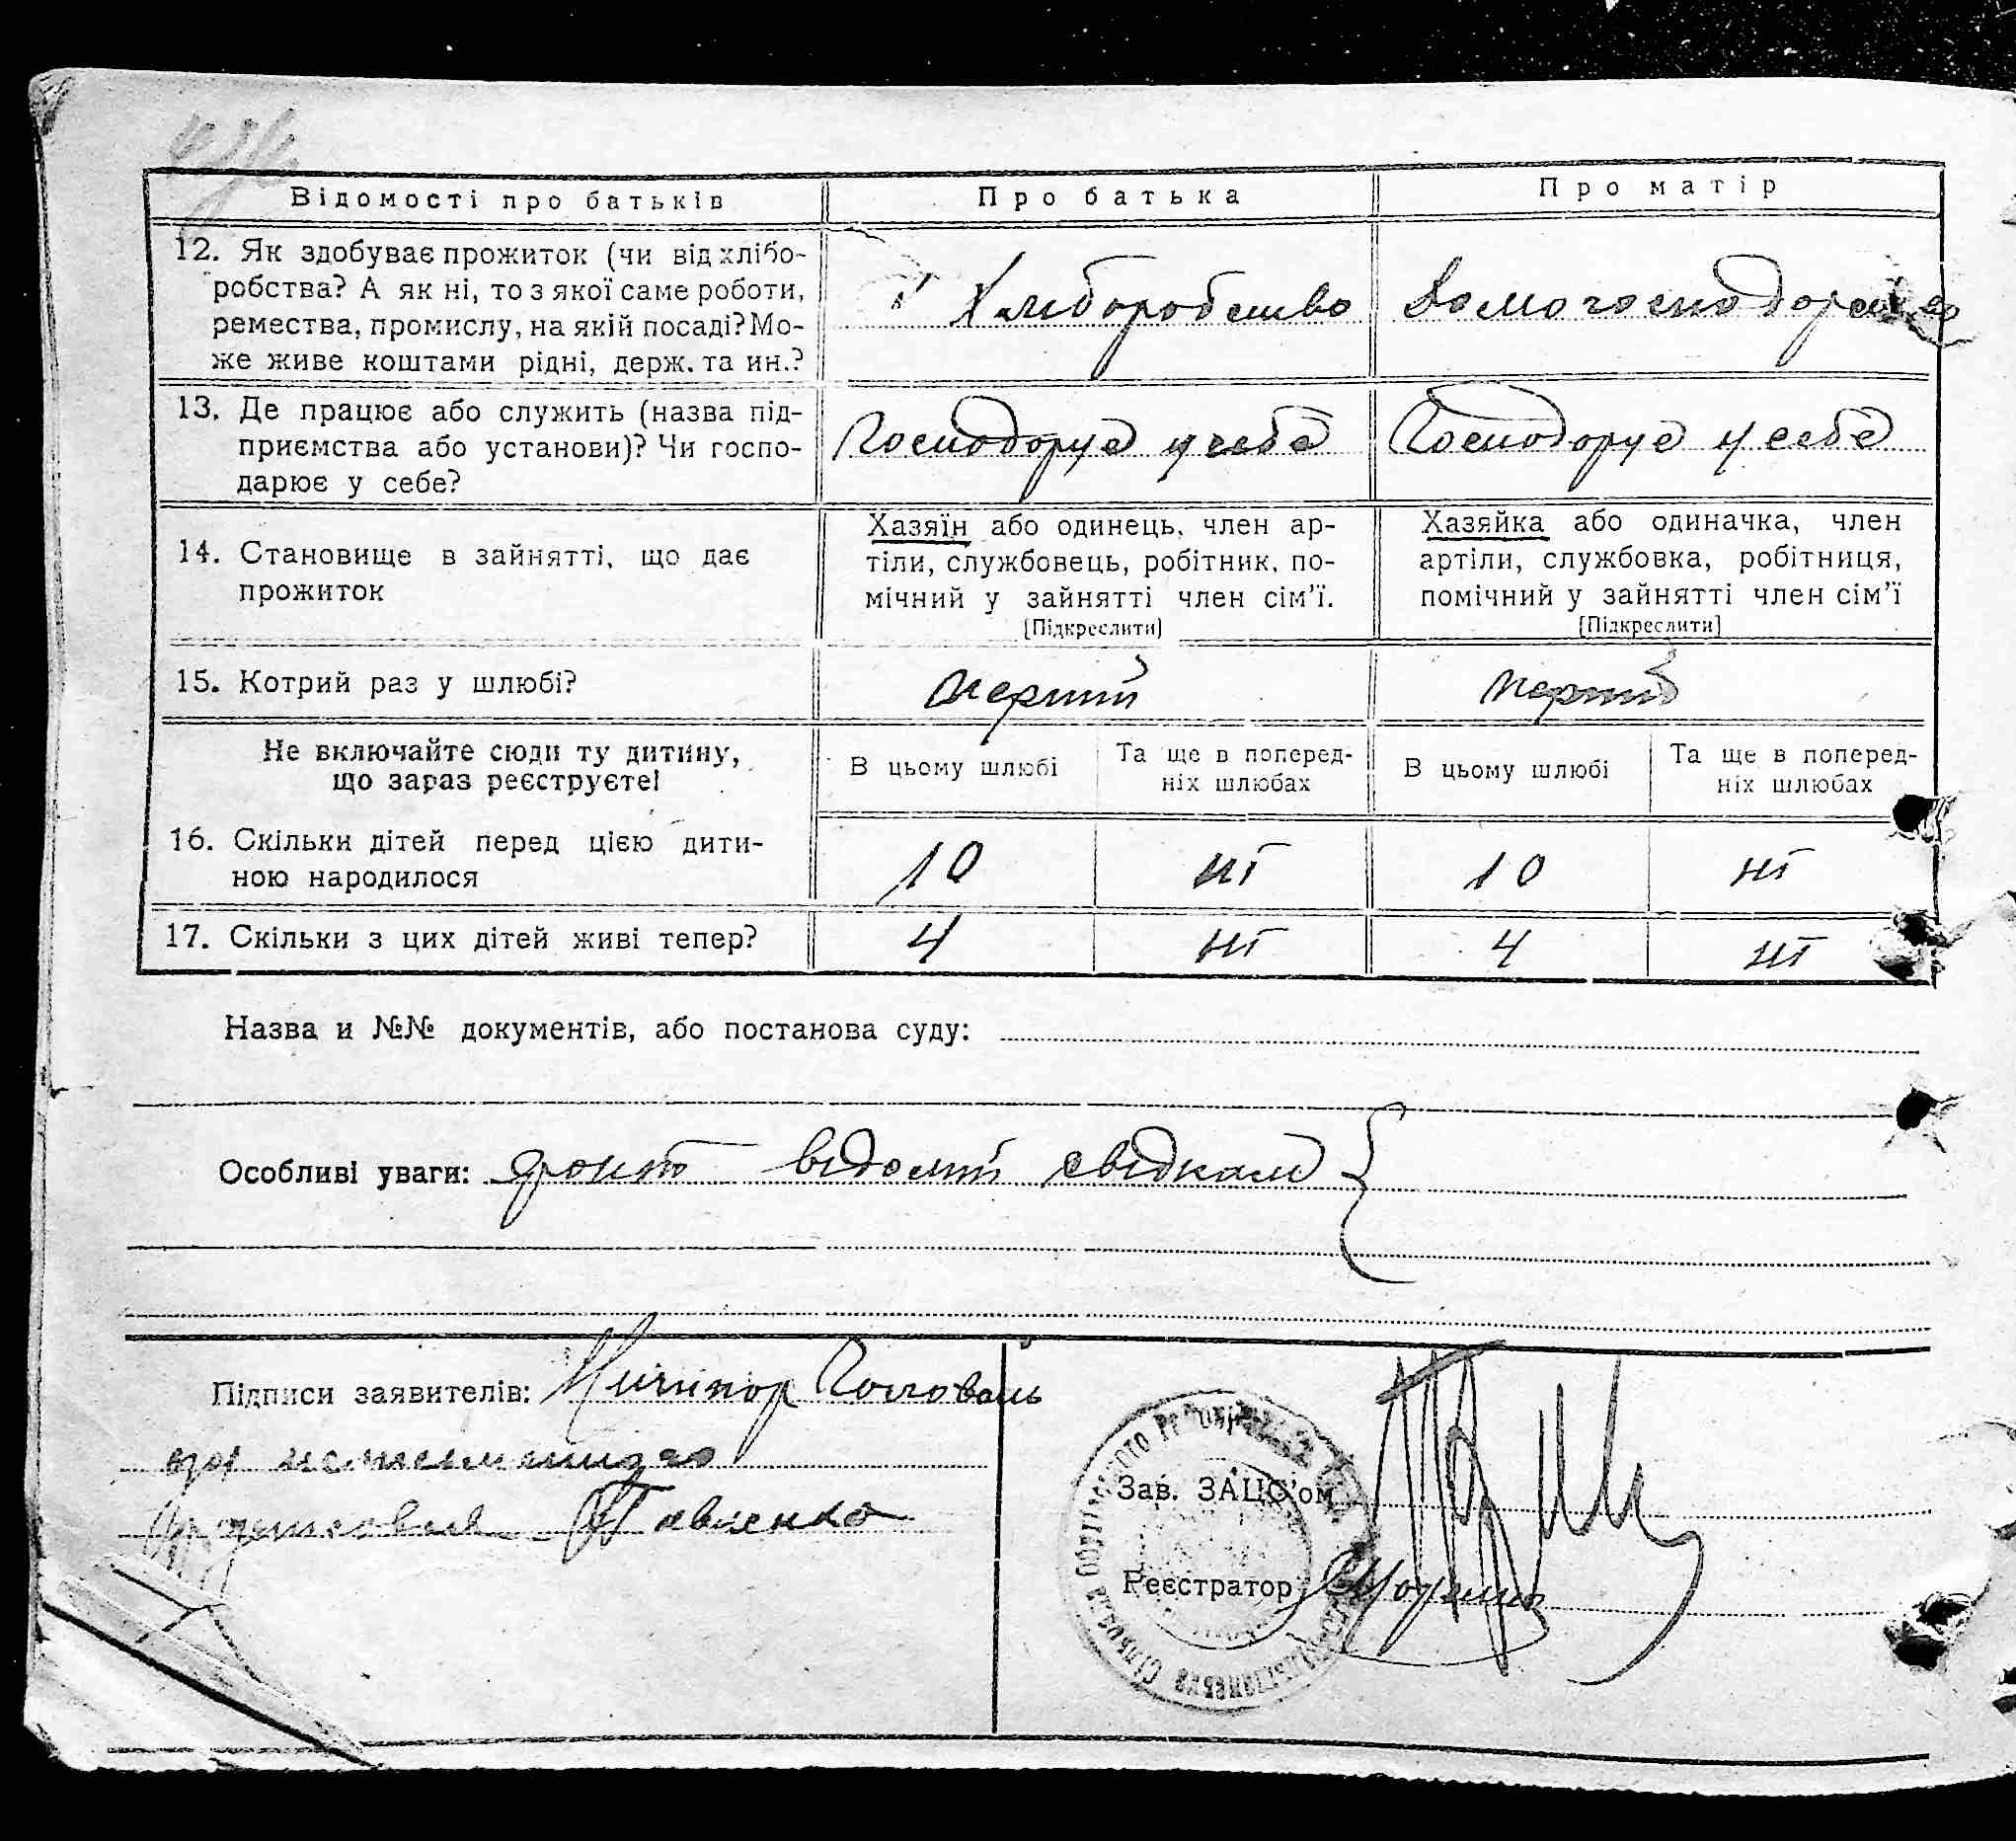 Відомості про батьків
Про батька
Про матір
12. Як здобуває прожиток (чи від хлібо-
робства? А як ні, то з якої саме роботи,
ремества, промислу, на якій посаді? Мо-
же живе коштами рідні, держ. та ин.?
Хліборобство
Домогосподарство
13. Де працює або служить (назва під-
приємства або установи)? Чи госпо-
дарює у себе?
Господорує у себе
Господорує у себе
14. Становище в зайнятті, що дає
прожиток
Хазяїн або одинець, член ар-
тіли, службовець, робітник, по-
мічний у зайнятті член сім'ї.
(Підкреслити)
Хазяйка або одиначка, член
артіли, службовка, робітниця,
помічний у зайнятті член сім'ї
(Підкреслити)
15. Котрий раз у шлюбі?
перший
перший
Не включайте сюди ту дитину,
що зараз реєструєте!
В цьому шлюбі
Та ще в поперед-
ніх шлюбах
В цьому шлюбі
Та ще в поперед-
ніх шлюбах
16. Скільки дітей перед цією дити-
ною народилося
10
ні
10
ні
17. Скільки з цих дітей живі тепер?
4
ні
4
ні
Назва и №№ документів, або постанова суду:
Особливі уваги: факт відомий свідкам
Підписи заявителів: Ничипор
Павленко
Зав. ЗАЦС'ом
Реєстратор